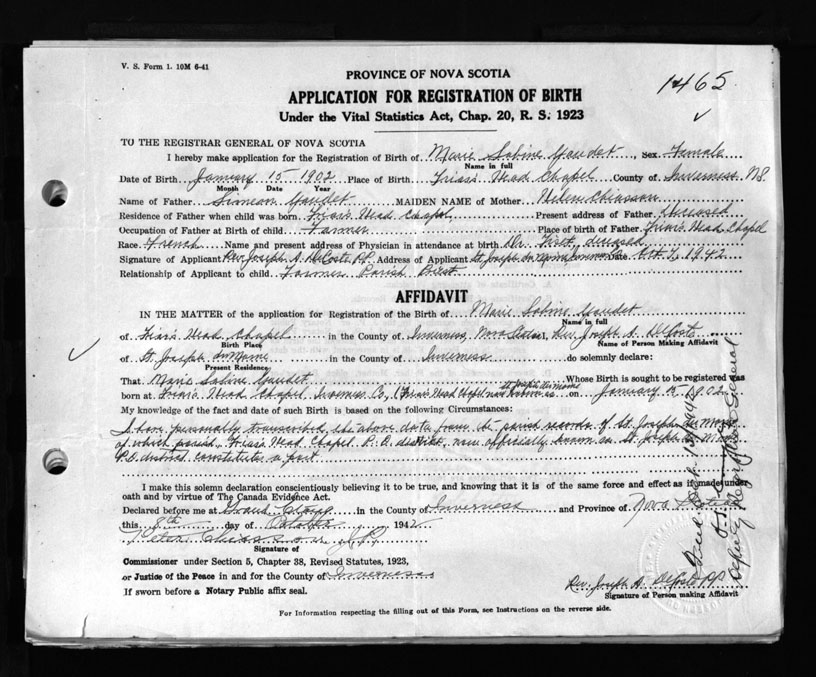 V. S. Form 1. 10M 6-41
1465
PROVINCE OF NOVA SCOTIA
APPLICATION FOR REGISTRATION OF BIRTH
Under the Vital Statistics Act, Chap. 20, R. S. 1923
TO THE REGISTRAR GENERAL OF NOVA SCOTIA
I hereby make application for the Registration of Birth of Marie Sabine Gaudet, Sex Female
Name in full
Date of Birth January 15 1902 Place of Birth Friar's Head Chapel County of Inverness N.S.
Month Date Year
Name of Father Simeon Gaudet MAIDEN NAME of Mother Helen Chiasson
Residence of Father when child was born Friar's Head Chapel Present address of Father Deceased
Occupation of Father at Birth of child Farmer Place of birth of Father Friar's Head Chapel
Race French Name and present address of Physician in attendance at birth Dr. Fiset, deceased
Signature of Applicant Rev. Joseph A. DeCoste P.P. Address of Applicant St. Joseph du Moine Date Oct. 7, 1942
Relationship of Applicant to child Former Parish Priest
AFFIDAVIT
IN THE MATTER of the application for Registration of the Birth of Marie Sabine Gaudet
Name in full
of Friar's Head Chapel in the County of Inverness, Nova Scotia I, Rev. Joseph A. DeCoste
Birth Place Name of Person Making Affidavit
of St. Joseph du Moine in the County of Inverness do solemnly declare:
Present Residence
That Marie Sabine Gaudet Whose Birth is sought to be registered was
born at Friar's Head Chapel, Inverness Co., (Friar's Head Chapel now known as St. Joseph du Moine on January 15 1902
My knowledge of the fact and date of such Birth is based on the following Circumstances:
I have personally transcribed the above data from the parish records of St. Joseph du Moine
of which parish, Friar's Head Chapel P.O. district, now officially known as St. Joseph du Moine
P.O. district constitutes a part
I make this solemn declaration conscientiously believing it to be true, and knowing that it is of the same force and effect as if made under
oath and by virtue of The Canada Evidence Act.
Declared before me at Grand Etang in the County of Inverness and Province of Nova Scotia
this 8th day of October 1942
Peter Chiasson J.P.
Signature of
Commissioner under Section 5, Chapter 38, Revised Statutes, 1923,
or Justice of the Peace in and for the County of Inverness
If sworn before a Notary Public affix seal.
Rev. Joseph A. DeCoste P.P.
Signature of Person making Affidavit
For Information respecting the filling out of this Form, see Instructions on the reverse side.
Deputy Registrar General